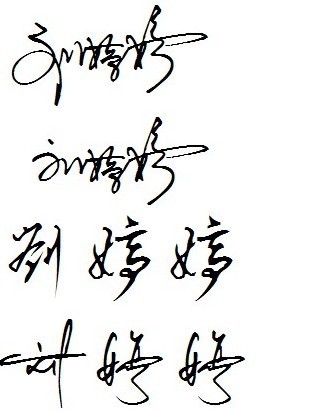 刘婷婷
刘婷婷
劉婷婷
刘婷婷